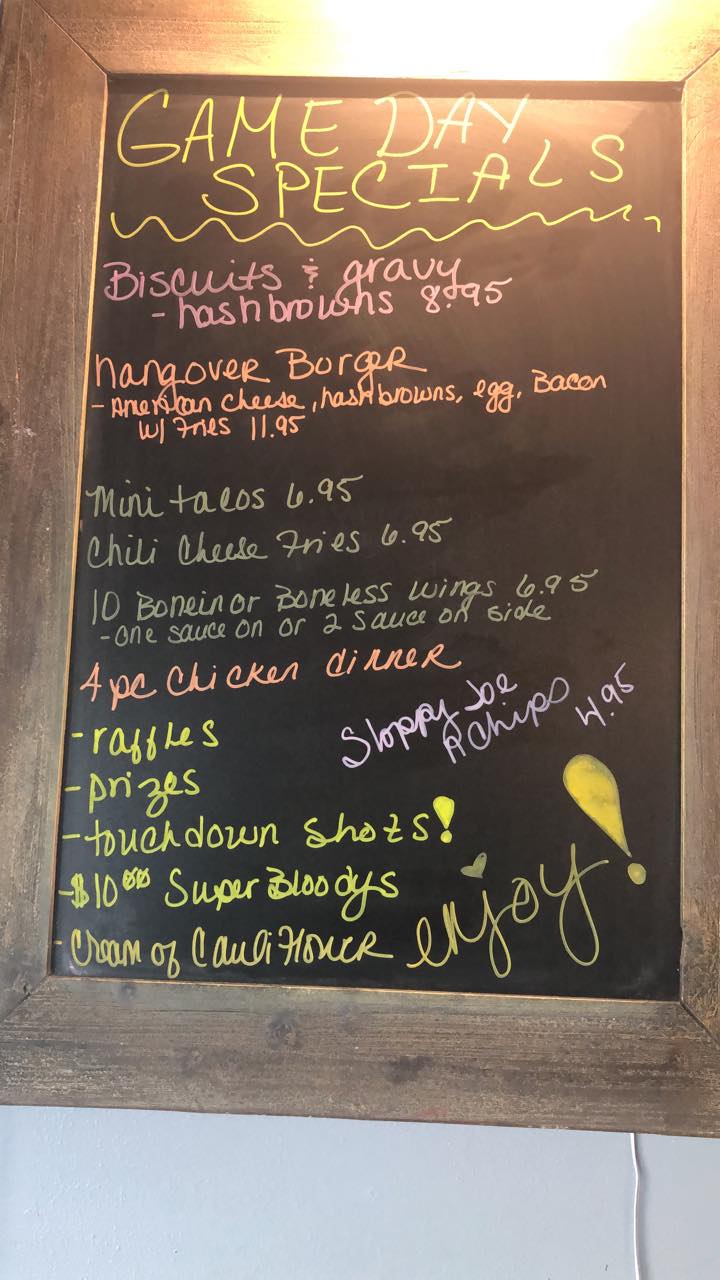 GAME DAY
SPECIALS
Biscuits & gravy
- hashbrowns 8.95
hangover Borger
- American cheese, hashbrowns, egg, Bacon
w/ Fries 11.95
Mini tacos 6.95
Chili Cheese Fries 6.95
10 Bonein or Boneless wings 6.95
- one sauce on or 2 sauce on side
4 pc chicken dinner
- raffles
Sloppy Joe
& Chips 4.95
- prizes
- touchdown shots!
- $10.00 Super Bloodys
- Cream of Cauliflower
enjoy!